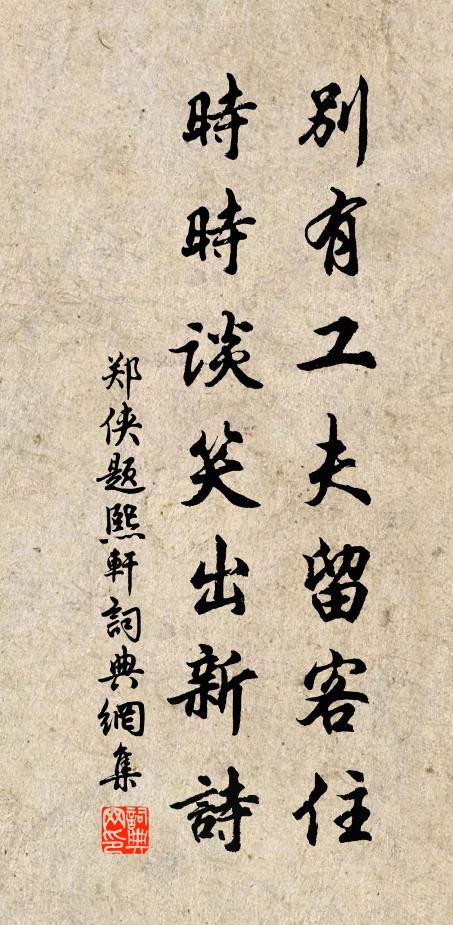 別有工夫留客住
時時談笑出新詩
郑俠题熙軒詞典網集
詞典网印